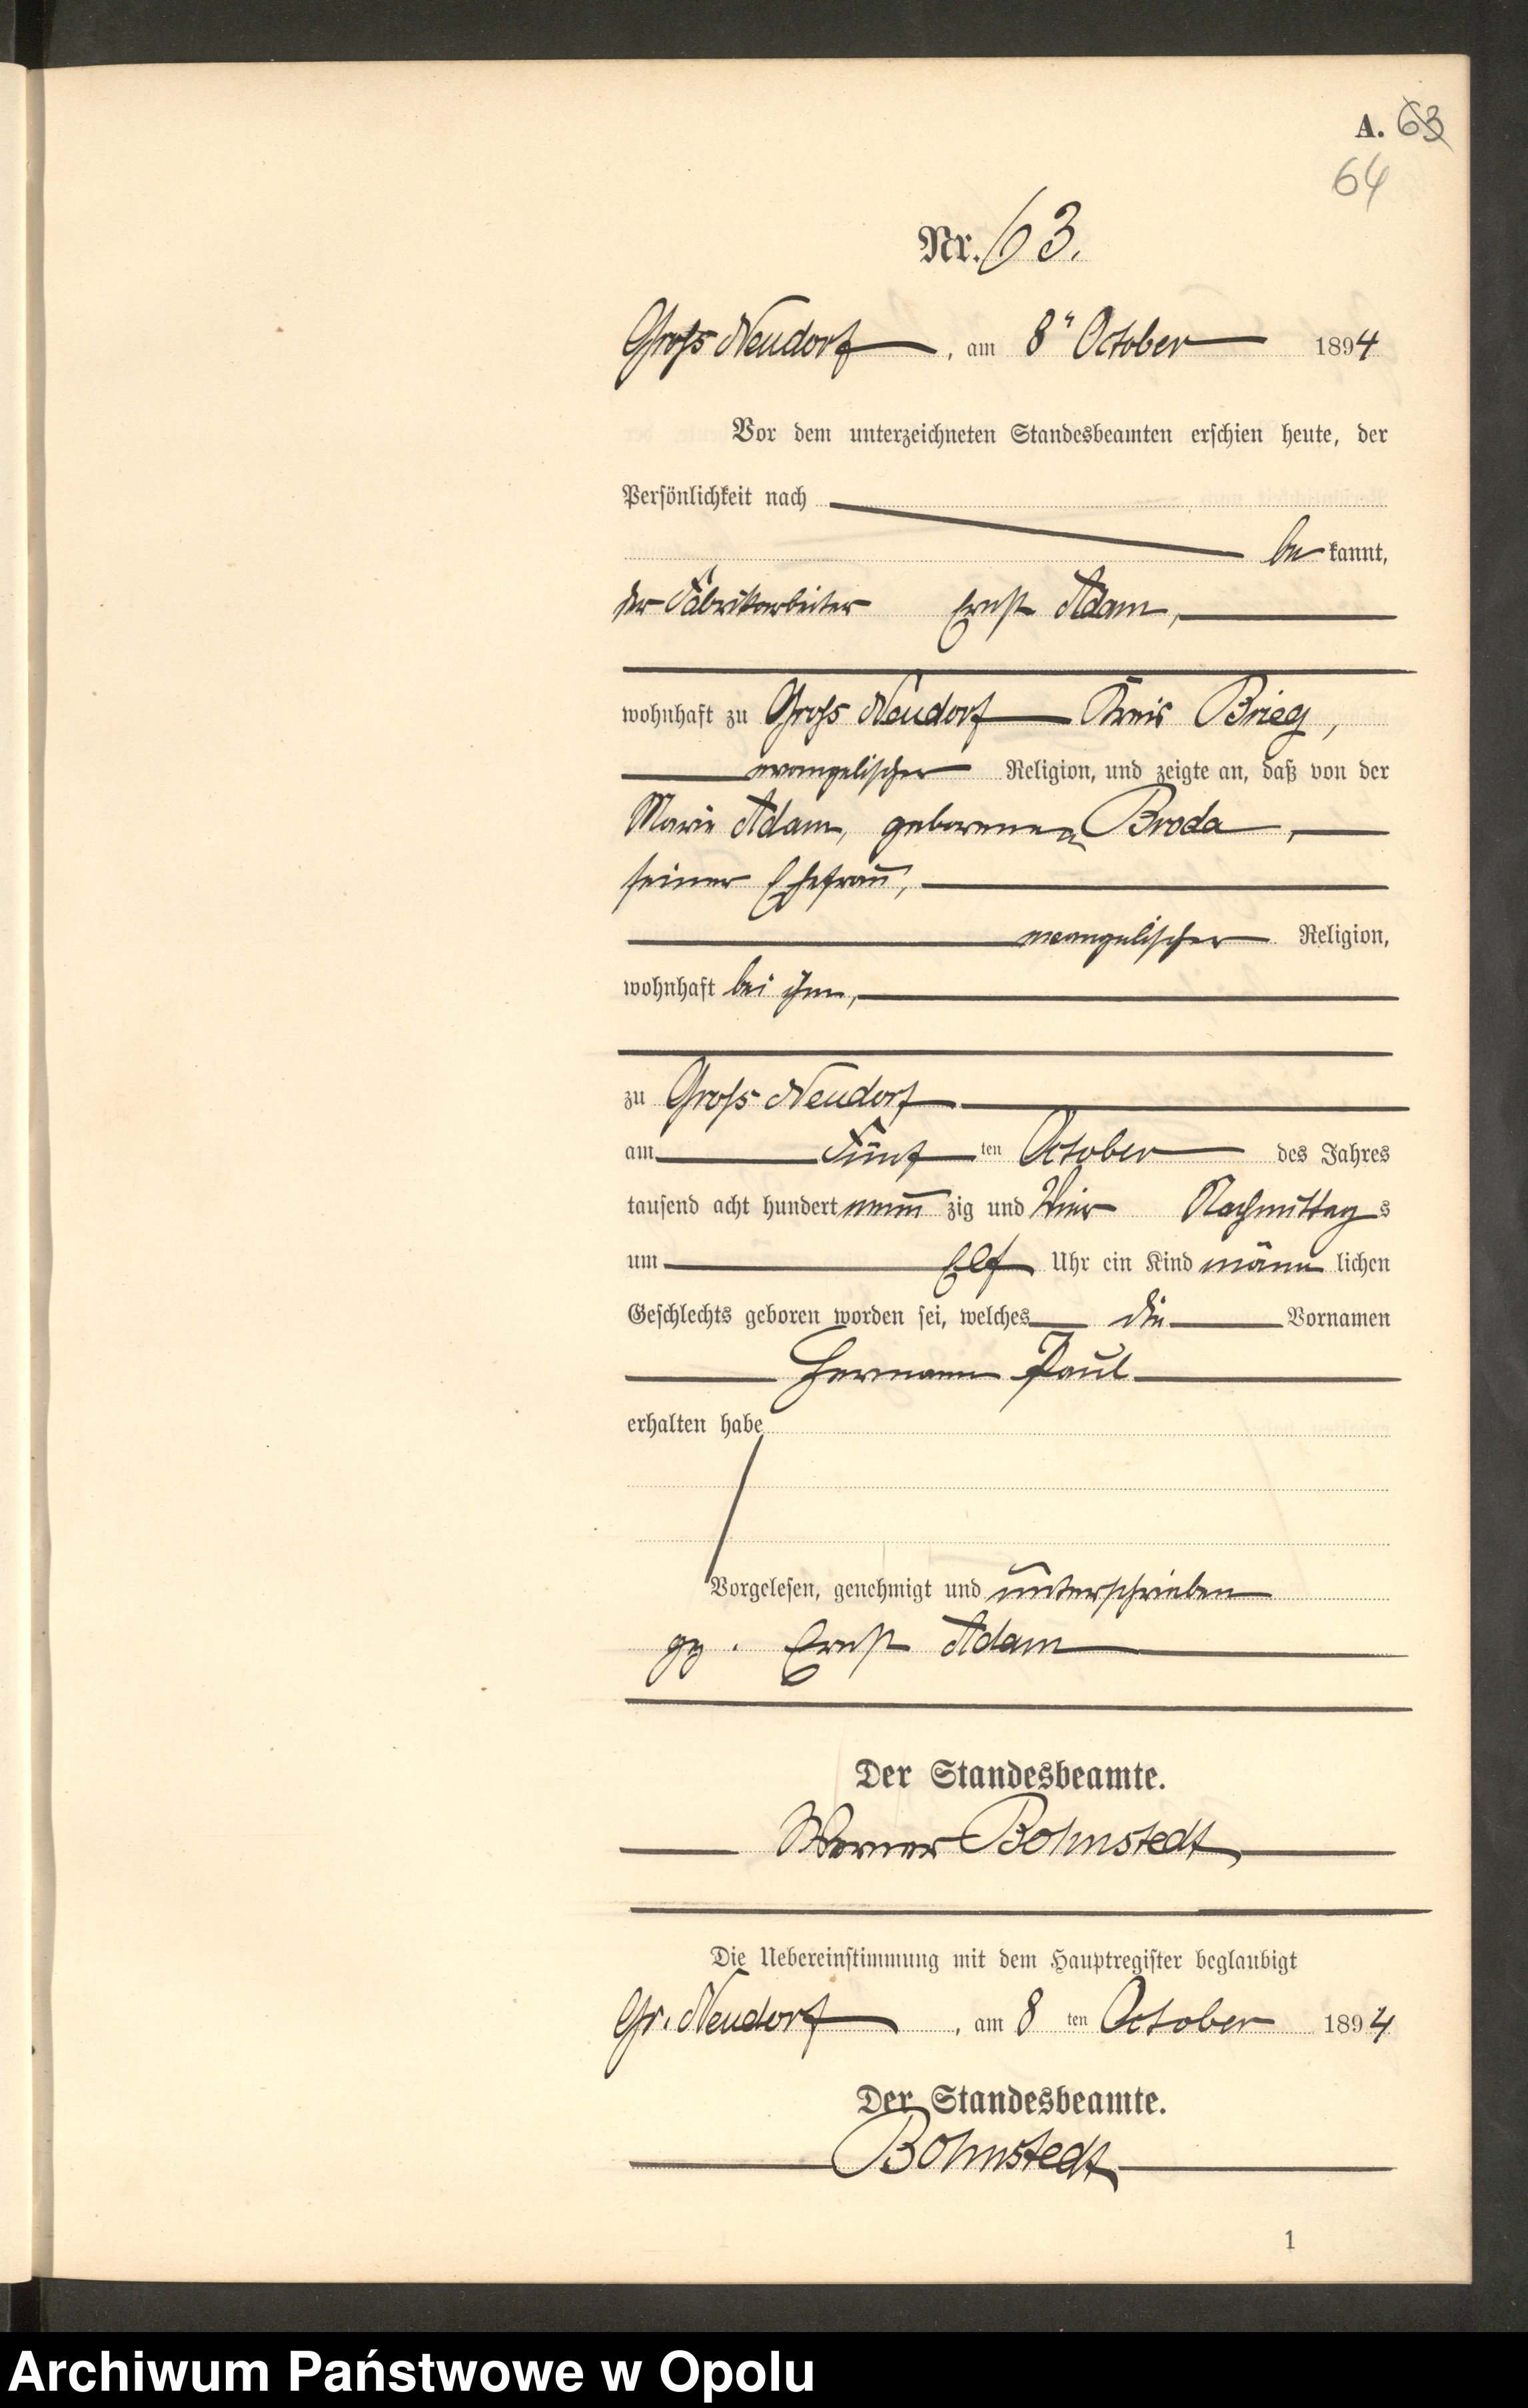 A. 63
64
Nr. 63.
Gross Neudorf, am 8" October 1894
Vor dem unterzeichneten Standesbeamten erschien heute, der
Persönlichkeit nach
be kannt,
der Fabrikarbeiter Ernst Adam,
wohnhaft zu Gross Neudorf Kreis Brieg,
evangelischer Religion, und zeigte an, daß von der
Marie Adam, geborenen Broda,
seiner Ehefrau,
evangelischer Religion,
wohnhaft bei ihm,
zu Gross Neudorf
am Fünf ten October des Jahres
tausend acht hundert neun zig und Vier Nachmittag s
um Elf Uhr ein Kind männ lichen
Geschlechts geboren worden sei, welches die Vornamen
Hermann Paul
erhalten habe
Vorgelesen, genehmigt und unterschrieben
gz. Ernst Adam
Der Standesbeamte.
Werner Bohnstedt
Die Uebereinstimmung mit dem Hauptregister beglaubigt
Gr. Neudorf, am 8 ten October 1894
Der Standesbeamte.
Bohnstedt
1
Archiwum Państwowe w Opolu